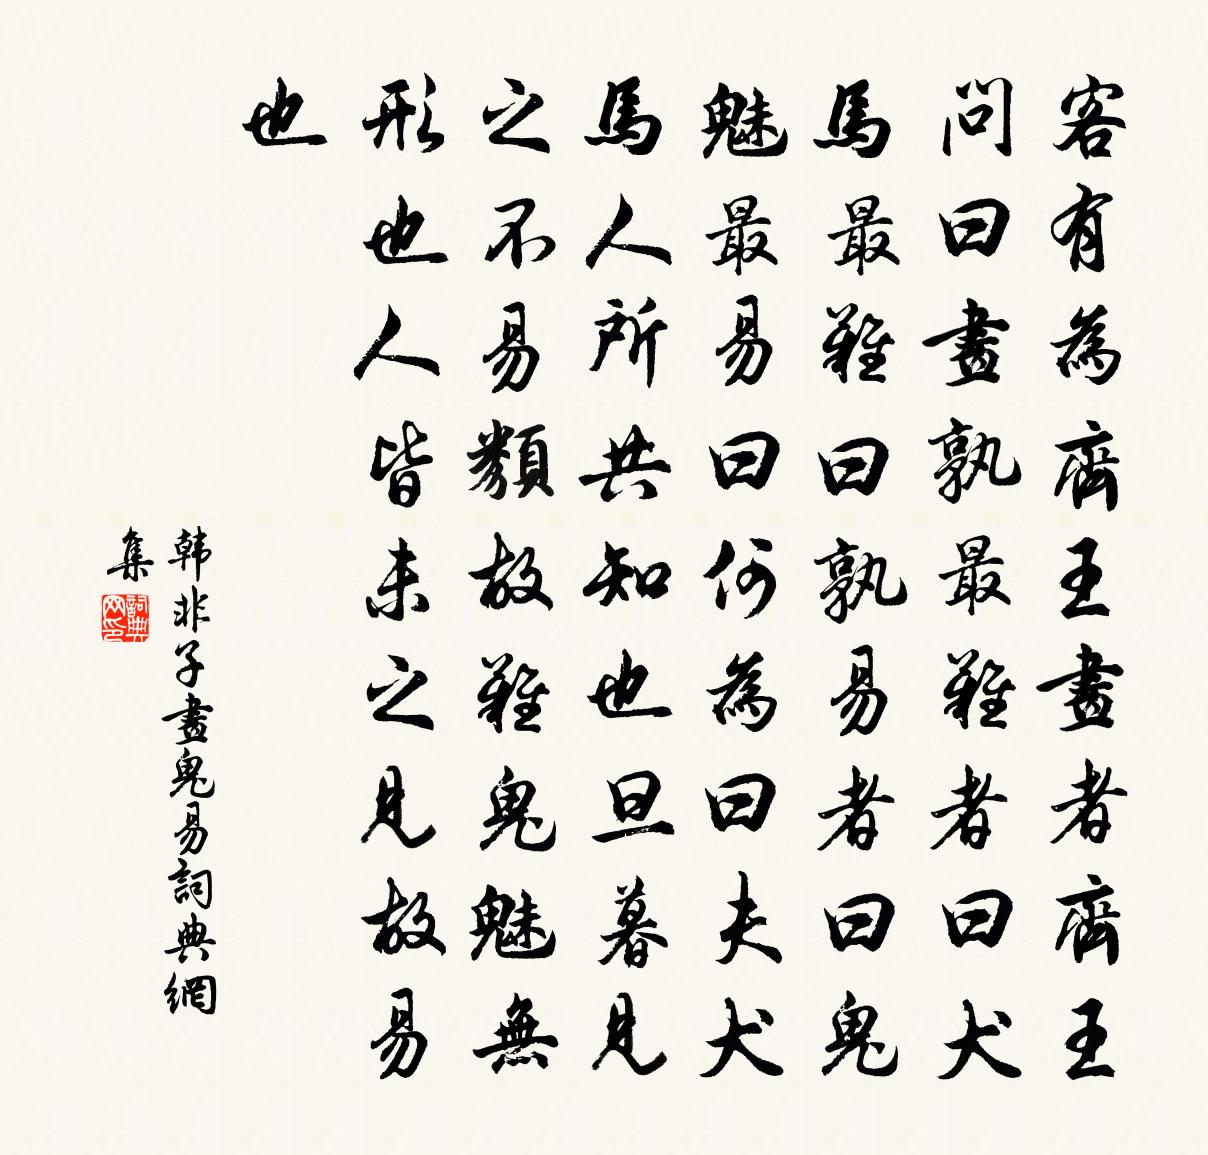 客有為齊王畫者齊王
問曰畫孰最難者曰犬
馬最難曰孰易者曰鬼
魅最易曰何為曰夫犬
馬人所共知也旦暮見
之不易類故難鬼魅無
形也人皆未之見故易
也
韩非子畫鬼易詞典網
集
詞典
网印